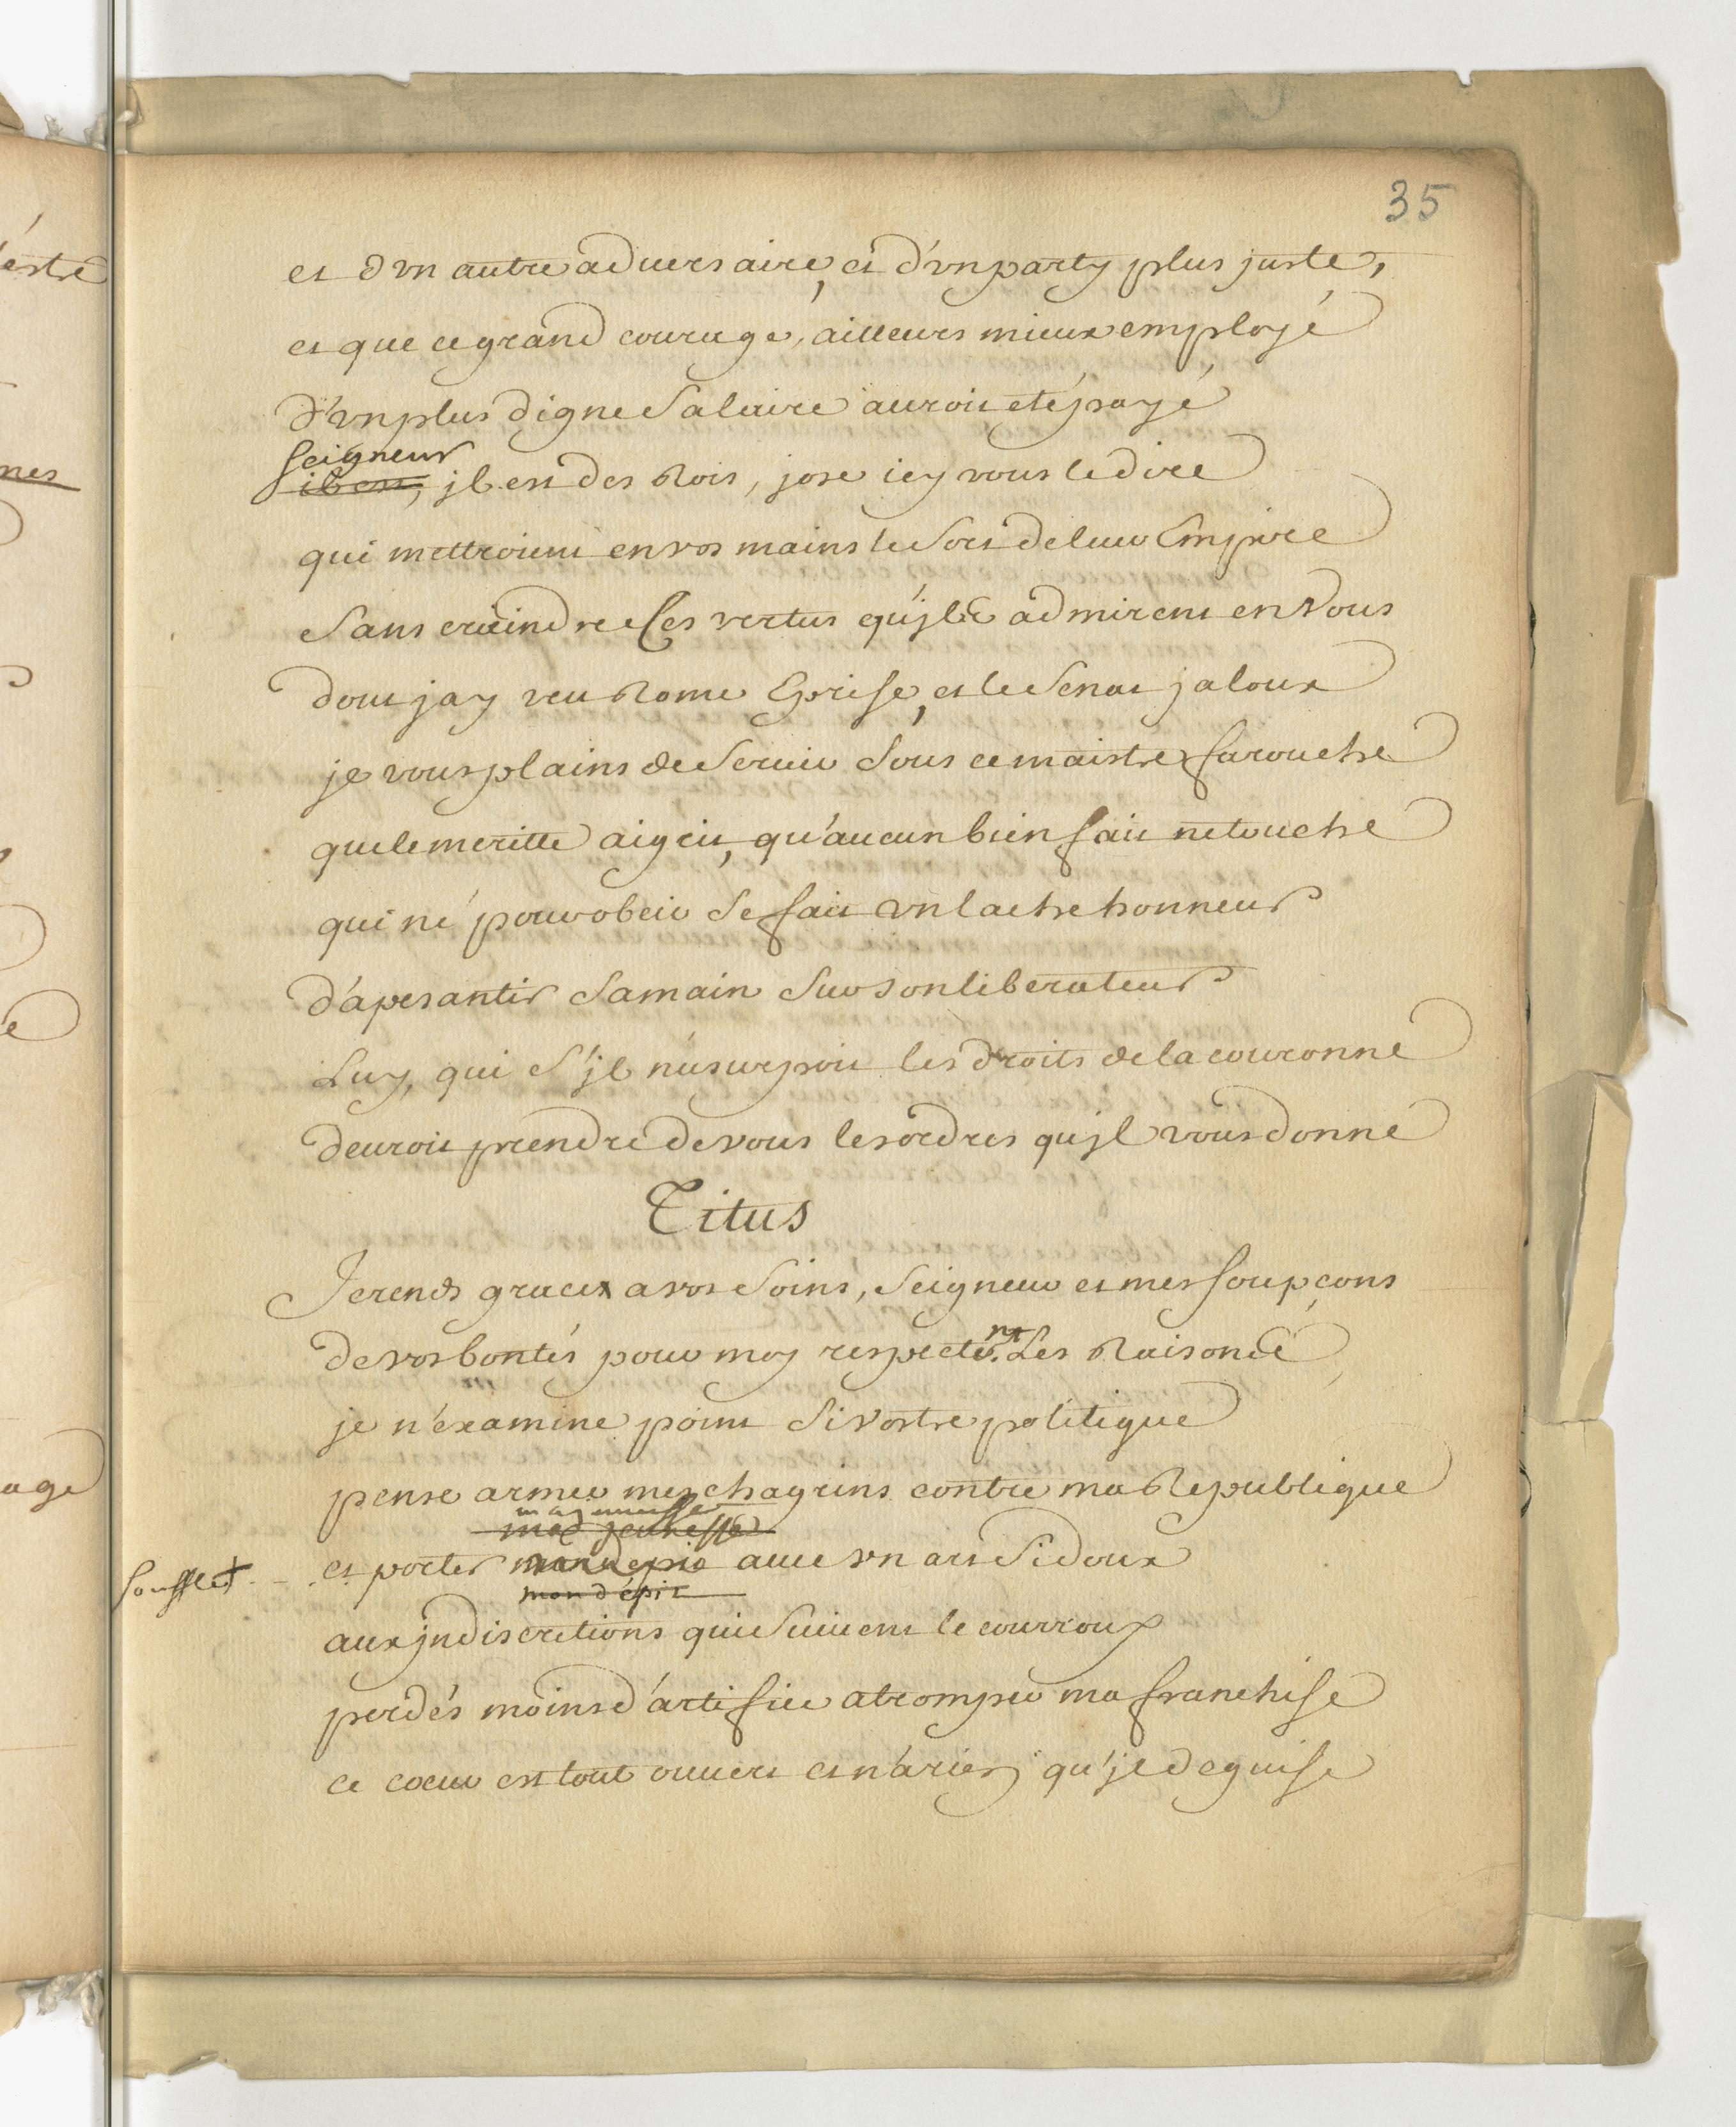 35
et d'vn autre aduersaire, et d'vn party plus juste,
et que ce grand courage, ailleurs mieux employé
D'vn plus digne Salaire auroit eté payé
Seigneur
il est, jl est des Rois, jose icy vous le dire
qui mettroient en vos mains le Sort de leur Empire
Sans craindre Ces vertus qu'jls admirent en Vous
dont jay veu Rome Eprise, et le Senat jaloux
je vous plains de Seruir Sous ce maistre farouche
que le meritte aigrit, qu'aucun bien fait ne touche
qui né pour obeir Se fait vn lache honneur
d'apesantir Sa main Sur Son liberateur
Luy, qui S'jl n'usurpoit les droits de la couronne
deuroit prendre de vous les ordres qu'jl vous donne
Titus
Je rends graces a vos Soins, Seigneur et mes Soupçons
de vos bontés pour moy respectent Les Raisons
je n'examine point Si Vostre politique
pense armer mes chagrins contre ma Republique
ma jeunesse
ma jeunesse
Soufflet et porter mon depit auec vn art Si doux
mon dépit
aux jndiscretions qui Suiuent le courroux
perdés moins d'artifice a tromper ma franchise
ce coeur est tout ouuert et n'a rien qu'jl deguise
estre
nes
age